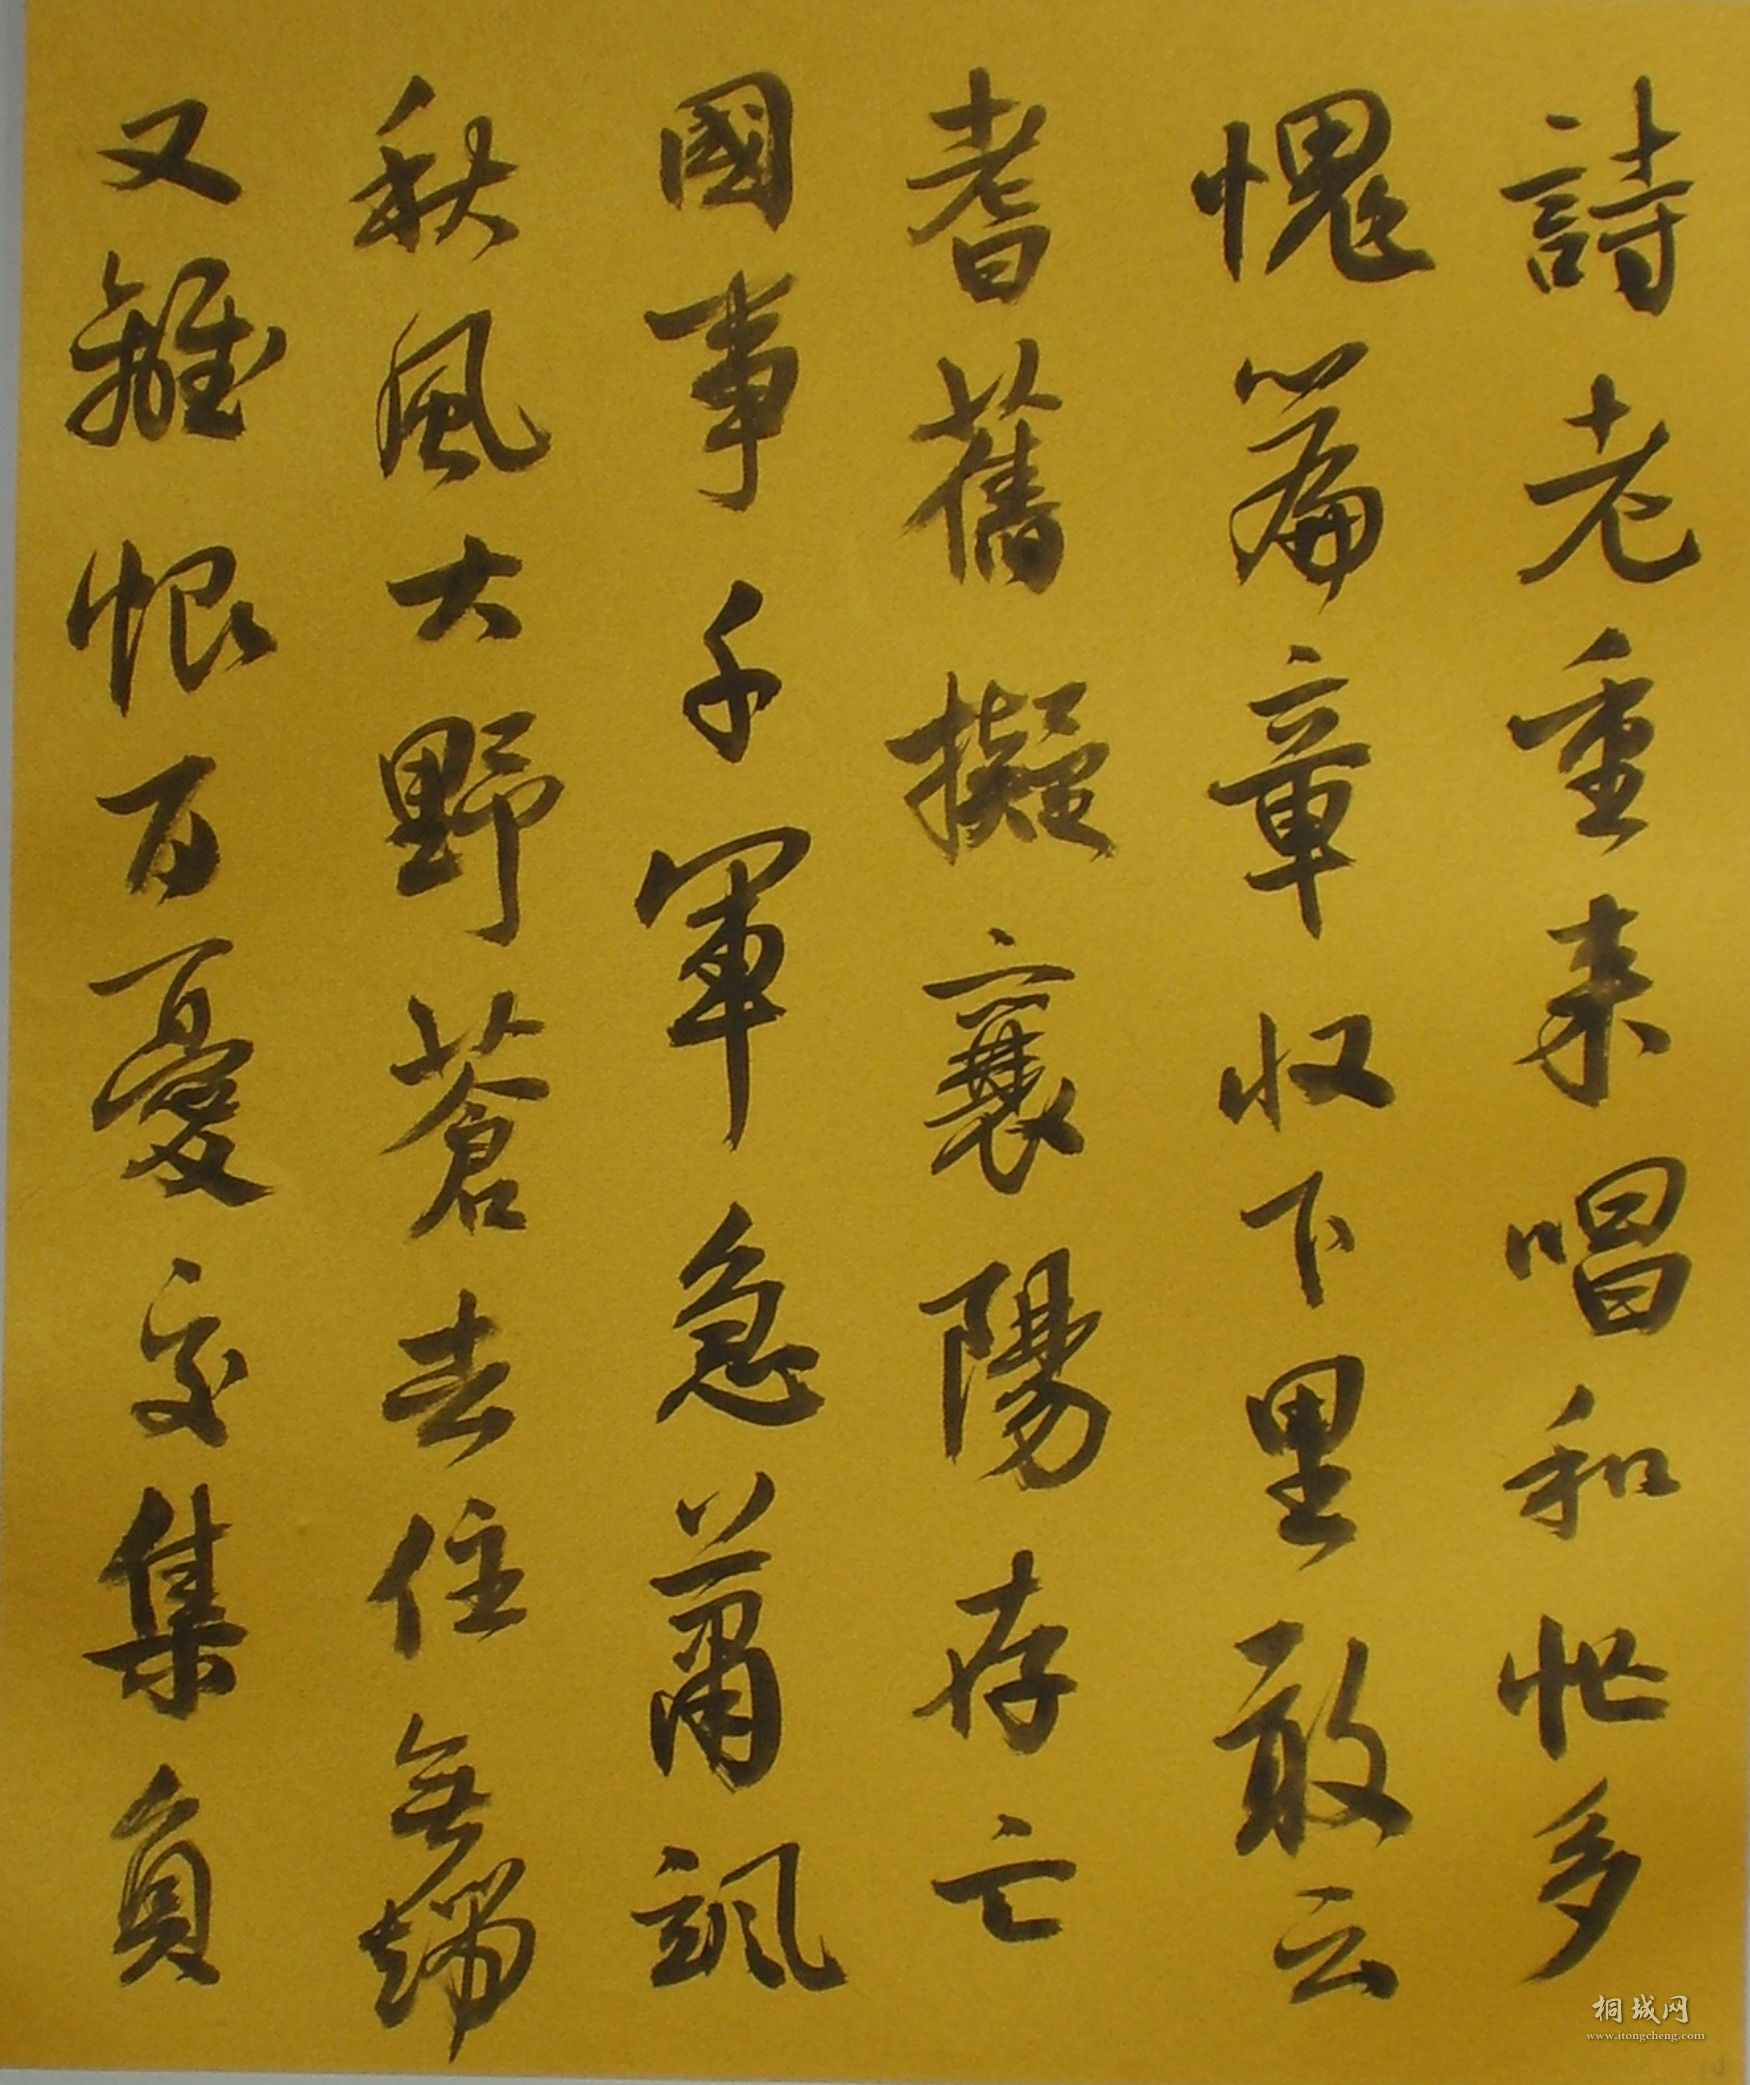 詩老重来唱和忙多
愧篇章收下里敢云
耆舊擬襄陽存亡
國事千軍急蕭颯
秋風大野蒼去住無端
又離恨百憂交集負
桐城网
www.itongcheng.com